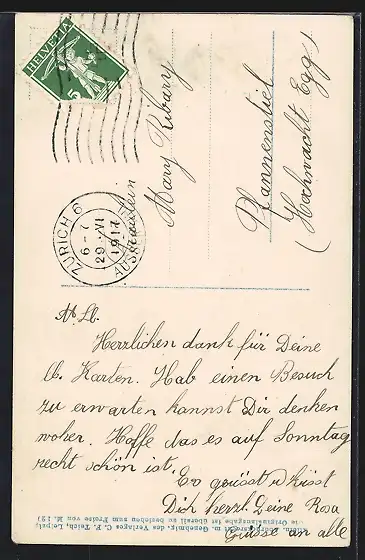 HELVETIA
5
ZÜRICH 6
6-7
29 VI
1917
Fräulein
Mary Ribary
Pfannenstiel
(Hochwacht Egg)
M. Lb.
Herzlichen dank für Deine
lb. Karten. Hab einen Besuch
zu erwarten kannst Dir denken
woher. Hoffe das es auf Sonntag
recht schön ist.
Es grüsst u küsst
Dich herzl. Deine Rosa
Grüsse an alle
m. Genehmig. des Verlages C. F. Teich, Leipzig,
die Originalausgabe ist überall zu beziehen zum Preise von M.